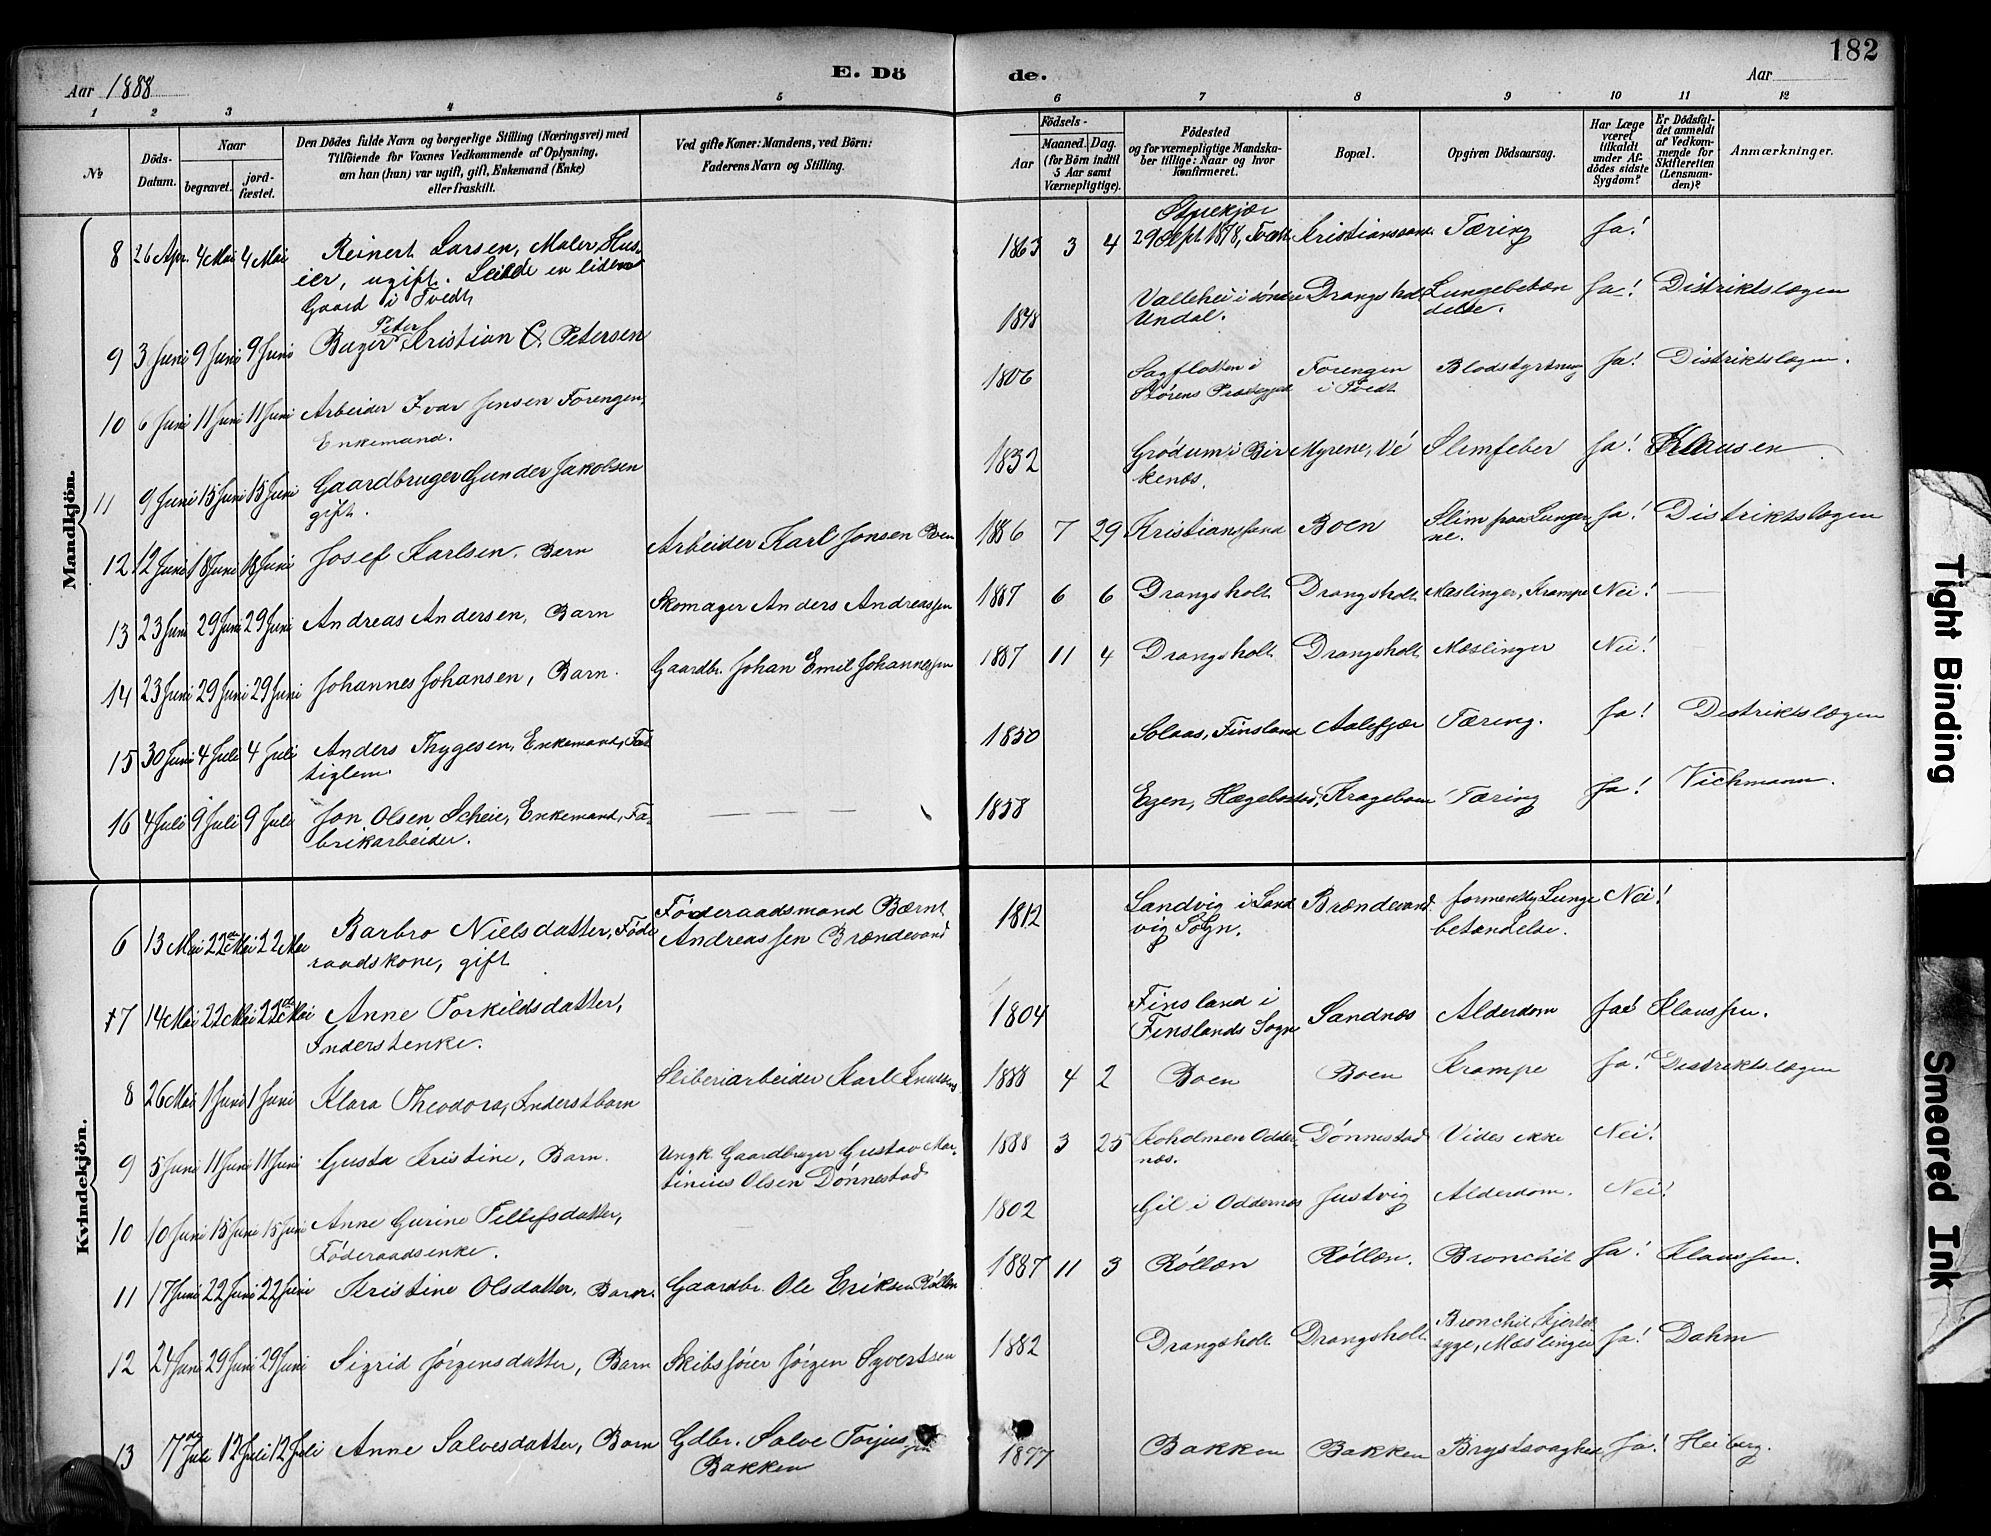 Aar 1888
E. Dö
de.
Aar
182
1 2 3 4 5 6 7 8 9 10 11 12
№
Döds-
Datum.
Naar
begravet.
jord-
fæstet.
Den Dödes fulde Navn og borgerlige Stilling (Næringsvei) med
Tilföiende for Voxnes Vedkommende af Oplysning,
om han (hun) var ugift, gift, Enkemand (Enke)
eller fraskilt.
Ved gifte Koner: Mandens, ved Börn:
Faderens Navn og Stilling.
Födsels-
Aar
Maaned. Dag.
(for Börn indtil
5 Aar samt
Værnepligtige).
Födested
og for værnepligtige Mandska-
ber tillige: Naar og hvor
konfirmeret.
Bopæl.
Opgiven Dödsaarsag.
Har Læge
været
tilkaldt
under Af-
dödes sidste
Sygdom?
Er Dödsfal-
det anmeldt
af Vedkom-
mende for
Skifteretten
(Lensman-
den)?
Anmærkninger.
Mandkjön.
8 26 Apr. 4 Mai 4 Mai Reinert Larsen, Maler, Hus-
ier, ugift. Leiede en liden
Gaard i Tvedt
1863 3 4 29 Sept 1878, Tvedt Kristianssand Tæring Ja!
9 3 Juni 9 Juni 9 Juni Bager Peter Kristian C. Petersen
1848 Vallehei i söndre
Undal. Drangsholt Lungebetæn
delse. Ja! Distriktslægen
10 6 Juni 11 Juni 11 Juni Arbeider Ivar Jensen Forengen,
Enkemand.
1806 Sagflotten i
Störens Præstegjeld Forengen
i Tvedt Blodstyrtning Ja! Distriktslægen.
11 9 Juni 15 Juni 15 Juni Gaardbruger Gunder Jakobsen
gift.
1832 Grödum i Bir
kenæs. Myrene, Ve Slimfeber Ja! Klausen
12 12 Juni 18 Juni 18 Juni Josef Karlsen, Barn Arbeider Karl Jonsen Boen
1886 7 29 Kristianssand Boen Slim paa Lunger
ne. Ja! Distriktslægen
13 23 Juni 29 Juni 29 Juni Andreas Andersen, Barn Skomager Anders Andreassen
1887 6 6 Drangsholt Drangsholt Mæslinger, Krampe Nei!
14 23 Juni 29 Juni 29 Juni Johannes Johansen, Barn. Gaardbr. Johan Emil Johannessen
1887 11 4 Drangsholt Drangsholt Mæslinger Nei!
15 30 Juni 4 Juli 4 Juli Anders Thygesen, Enkemand, Fat
tiglem.
1830 Solaas, Finsland Aalefjær Tæring. Ja! Distriktslægen
16 4 Juli 9 Juli 9 Juli Jon Olsen Scheie, Enkemand, Fa-
brikarbeider.
1838 Egen, Hægebostad, Kragebom Tæring Ja! Vichmann.
Kvindekjön.
6 13 Mai 22de Mai 22 Mai Barbro Nielsdatter, Föde
raadskone, gift
Föderaadsmand Bærnt
Andreassen Brændevand
1812 Sandvig i Land
vig Sogn. Brændevand formentlig Lunge
betændelse. Nei!
7 14 Mai 22 Mai 22de Mai Anne Torkildsdatter,
Inderstenke.
1804 Finsland i
Finslands Sogn Sandnæs Alderdom Ja! Klaussen.
8 26 Mai 1 Juni 1 Juni Klara Theodora, Inderstbarn Sliberiarbeider Karl Knudsens
1888 4 2 Boen Boen Krampe Ja! Distriktslægen
9 5 Juni 11 Juni 11 Juni Gusta Kristine, Barn. Ungk. Gaardbruger Gustav Mar-
tinius Olsen Dönnestad
1888 3 25 Koholmen Odder
næs. Dönnestad Vides ikke Nei!
10 10 Juni 15 Juni 15 Juni Anne Gurine Tellefsdatter,
Föderaadsenke.
1802 Gil i Oddernæs Justvig Alderdom. Nei!
11 17 Juni 22 Juni 22 Juni Kristine Olsdatter, Barn. Gaardbr. Ole Eriksen Röllen
1887 11 3 Röllæn Röllæn. Bronchit Ja! Klaussen.
12 24 Juni 29 Juni 29 Juni Sigrid Jörgensdatter, Barn Skibsförer Jörgen Syvertsen
1882 Drangsholt Drangsholt Bronchit, Hjerte
syge, Mæslinger Ja! Dahm
13 7de Juli 12 Juli 12 Juli Anne Salvesdatter, Barn Gdbr. Salve Torjussen
Bakken
1877 Bakken Bakken Brystsvaghed Ja! Heiberg.
Tight Binding
Smeared Ink